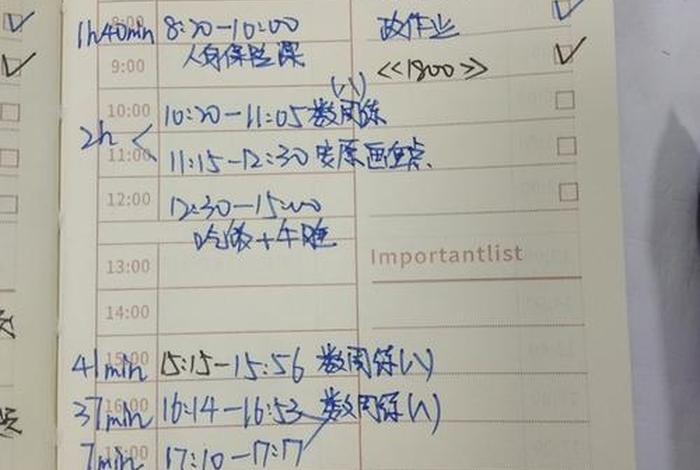 8:00
1h40min 8:20-10:00 改作业
人身保险课
9:00 <<1800>>
(八)
10:00
10:20-11:05 数周练
2h <
11:00
11:15-12:30
12:00
12:30-15:00
吃饭+午睡
Importantlist
13:00
14:00
15:00
41min 15:15-15:56 数周练(八)
16:00
37min 16:14-16:53 数周练(八)
17:00
7min 17:10-17:17